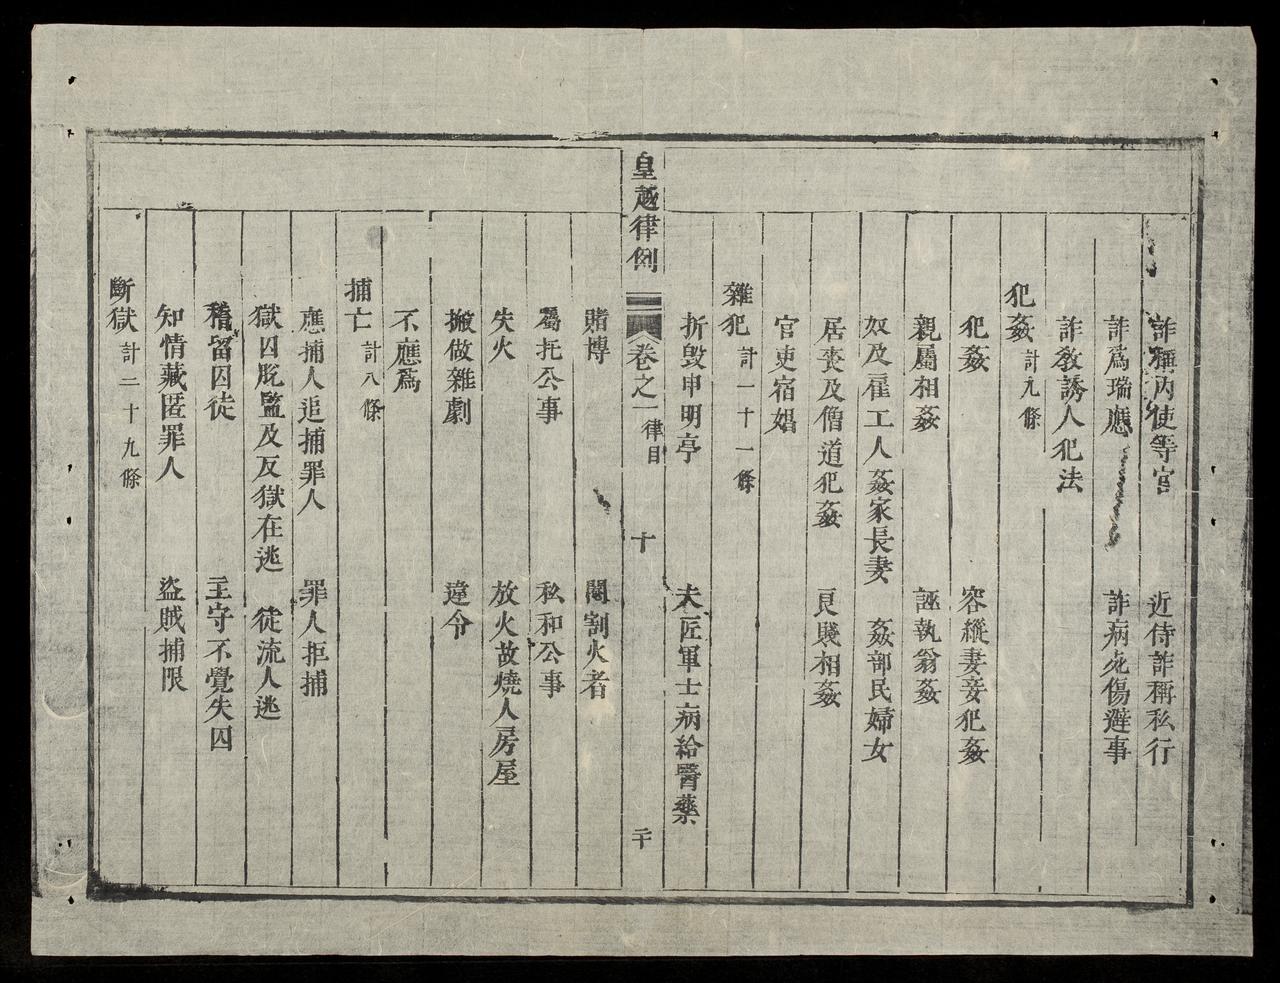 詐稱內使等官 近侍詐稱私行
詐爲瑞應 詐病死傷避事
詐敎誘人犯法
犯姦 計九條
犯姦 容縱妻妾犯姦
親屬相姦 誣執翁姦
奴及雇工人姦家長妻 姦部民婦女
居喪及僧道犯姦 良賤相姦
官吏宿娼
雜犯 計一十一條
折毀申明亭 夫匠軍士病給醫藥
皇越律例 卷之一 律目 十 二十
賭博 閹割火者
屬托公事 私和公事
失火 放火故燒人房屋
搬做雜劇 違令
不應爲
捕亡 計八條
應捕人追捕罪人 罪人拒捕
獄囚脫監及反獄在逃 徒流人逃
稽留囚徒 主守不覺失囚
知情藏匿罪人 盜賊捕限
斷獄 計二十九條